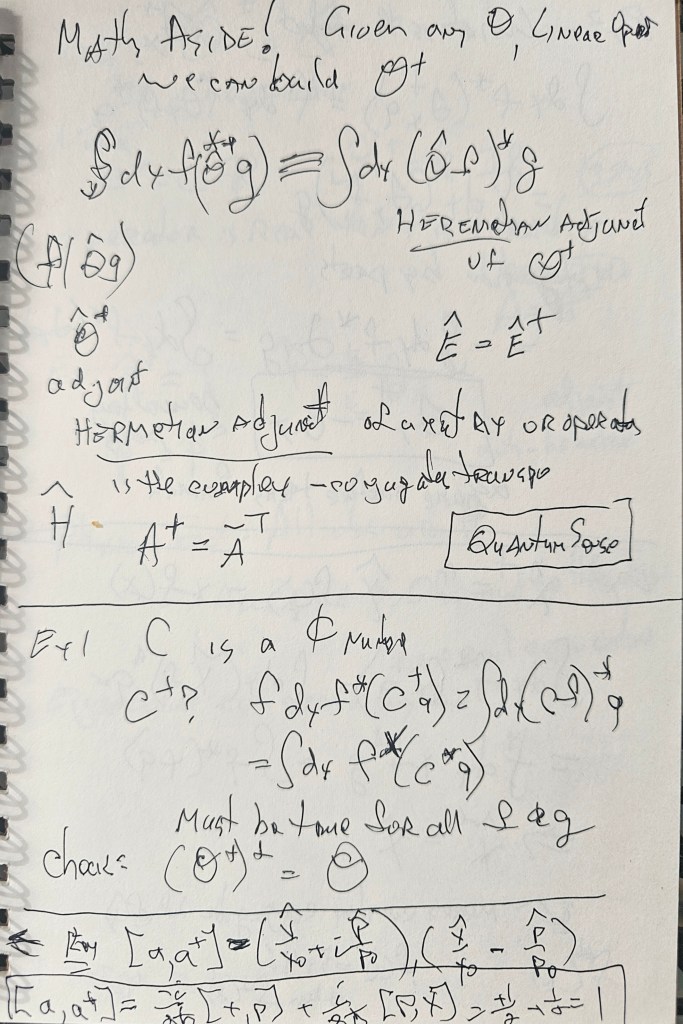 Math ASIDE! Given any O, Linear Oper
we can build O†
∫dx f*(Ô†g) ≡ ∫dx (Ôf)* g
(f|Ôg)
HEREMETIAN Adjunct
of O†
Ô†
Ê = Ê†
HERMETIAN Adjunct of a matrix OR operator
is the complex-conjugate transpo
Ĥ
A† = Ā^T
QUANTUM Sense
Ex 1 C is a ₵ Number
C†? ∫dx f*(C†g) = ∫dx (cf)* g
= ∫dx f*(c*g)
Must be true for all f & g
(O†)† = O
← [a,a†] = (x̂/x₀ + i p̂/p₀), (x̂/x₀ - p̂/p₀)